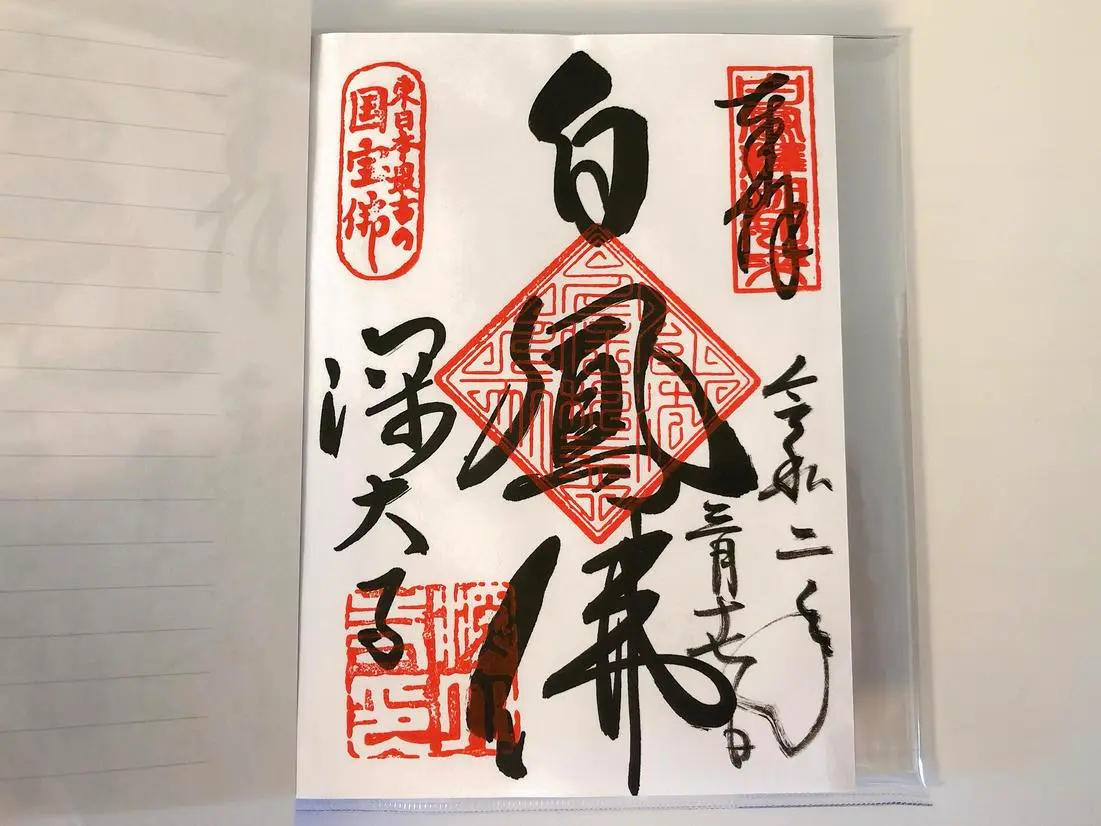 奉拝
令和二年
三月十七日
白鳳佛
東日本最古の
国宝佛
深大寺
深大寺印